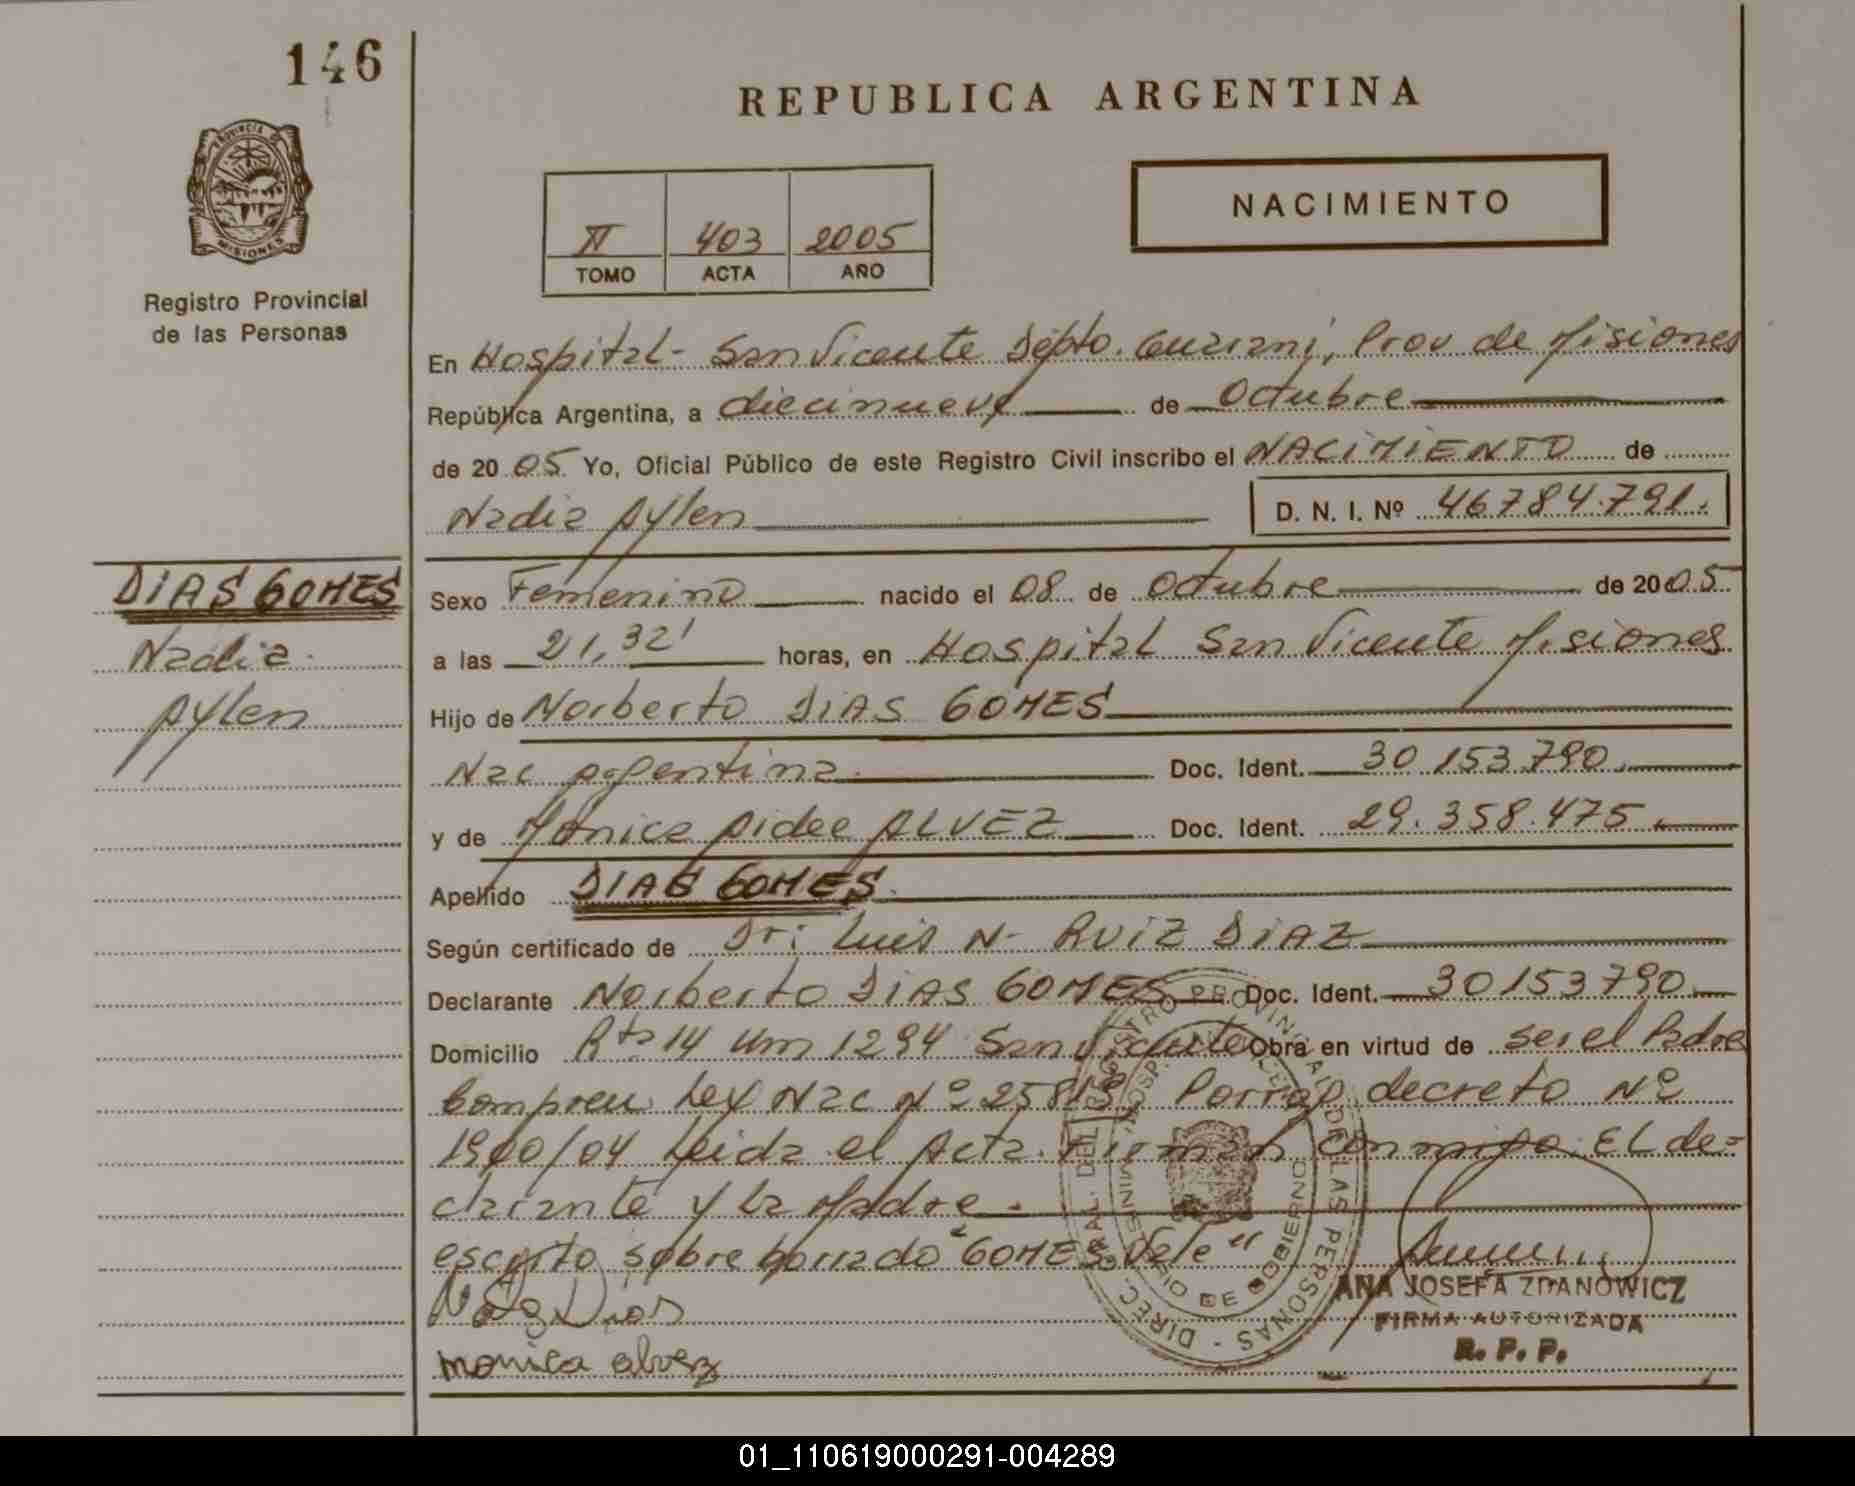 146
REPUBLICA ARGENTINA
PROVINCIA DE
MISIONES
Registro Provincial
de las Personas
II 403 2005
TOMO ACTA AÑO
NACIMIENTO
En Hospital - San Vicente Dépto. Guarani, Prov de Misiones
República Argentina, a diecinueve de Octubre
de 2005 Yo, Oficial Público de este Registro Civil inscribo el NACIMIENTO de
Nadia Aylen D. N. I. Nº 46784.791.
DIAS GOMES
Nadia
Aylen
Sexo Femenino nacido el 08 de Octubre de 2005
a las 21,32' horas, en Hospital San Vicente Misiones
Hijo de Norberto DIAS GOMES
Nac Argentina Doc. Ident. 30.153.790.
y de Monica Aidee ALVEZ Doc. Ident. 29.358.475.
Apellido DIAS GOMES.
Según certificado de Dr: Luis N- RUIZ DIAZ
Declarante Norberto DIAS GOMES Doc. Ident. 30153790.
Domicilio Rta 14 Km 1294 San Vicente Obra en virtud de ser el Padre
Compren Ley Nac Nº 25818, Porrog decreto Nº
1900/04 Leida el Acta. Firman conmigo: EL de=
clarante y la Madre.
escrito sobre borrado "GOMES Vale"
Dias
monica alvez
ANA JOSEFA ZDANOWICZ
FIRMA AUTORIZADA
R. P. P.
DIREC. GRAL. DEL REGISTRO PROVINCIAL DE LAS PERSONAS
MINISTERIO DE GOBIERNO
01_110619000291-004289